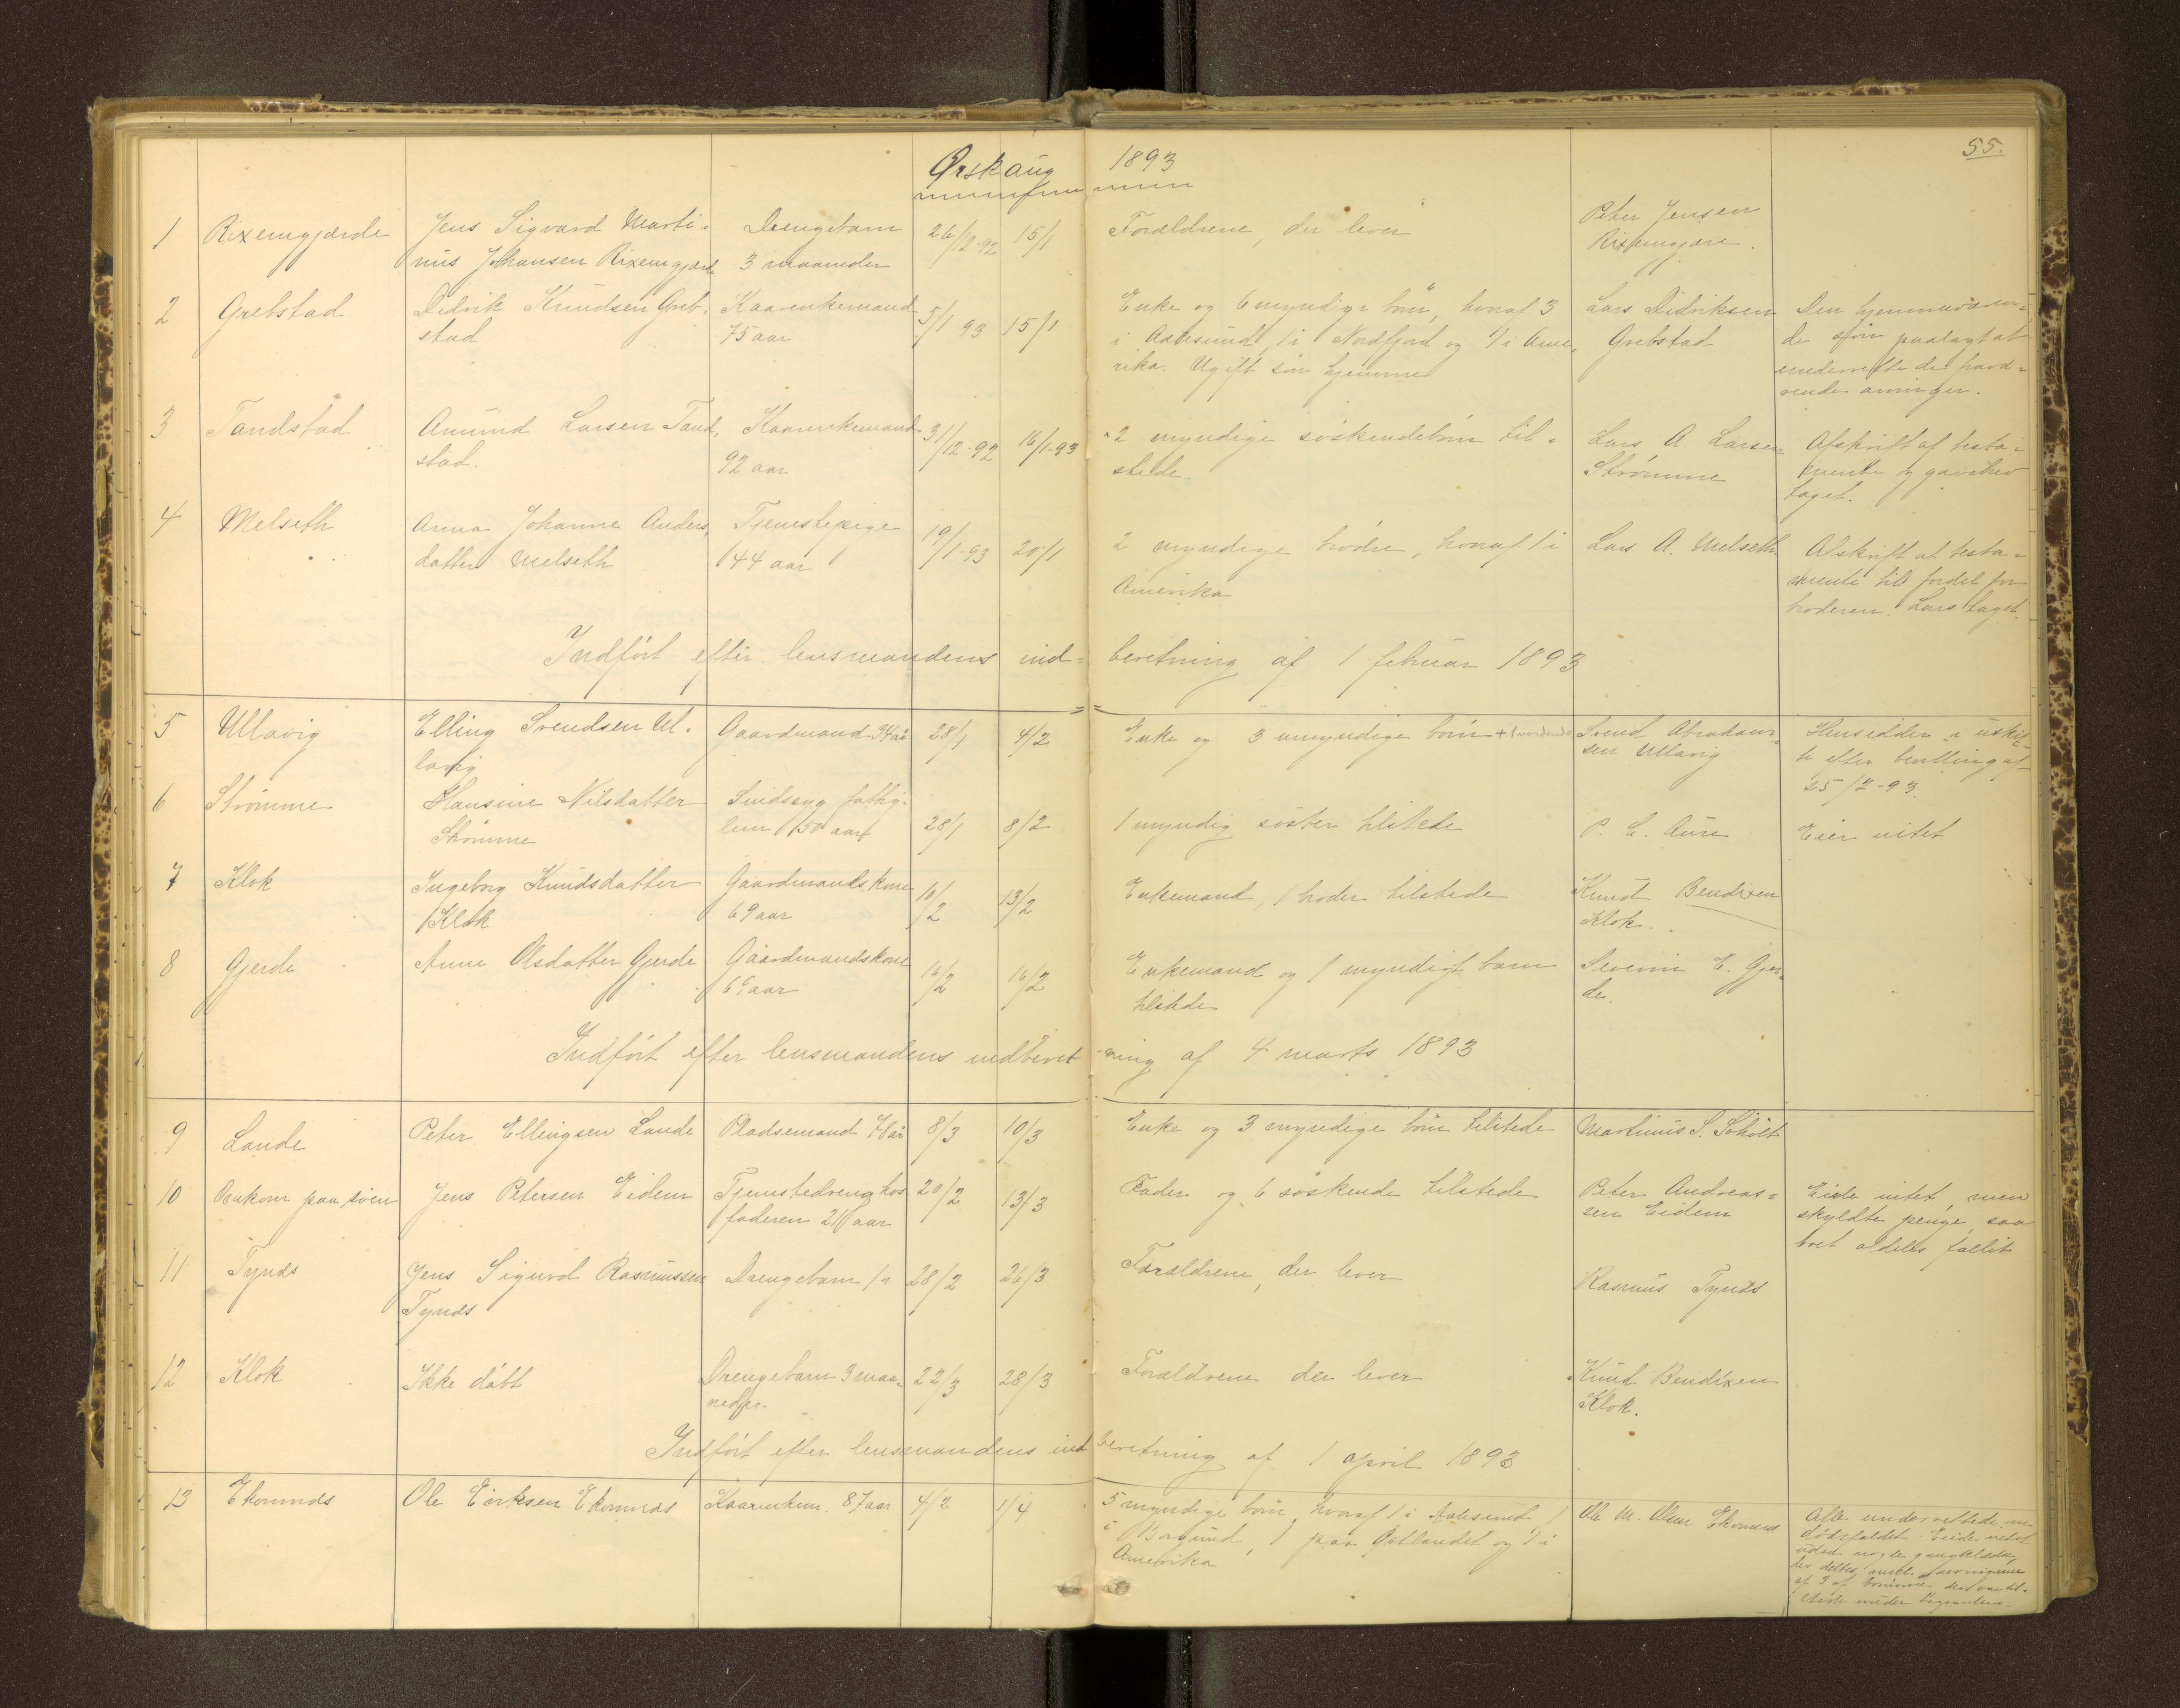 Ørskaug 1893
55.
1 Rixemgjærde Jens Sigvard Marti- Drengebarn 26/12-92 15/1 Forældrene, der lever Peter Jensen
nus Johansen Rixemgjærde 3 maaneder Rixemgjære.
2 Grebstad Didrik Knudsen Greb- Kaarenkemand 5/1 93 15/1 Enke og 6 myndige børn, hvoraf 3 Lars Didriksen Den hjemmeværen-
stad 75 aar i Aalesund, 1 i Nordfjord og 1 i Ame- Grebstad de søn paalagt at
rika. Ugift søn hjemme underrette de
arvinger.
3 Tandstad Amund Larsen Tand- Kaarenkemand 31/12-92 16/1-93 2 myndige søskendebørn til- Lars A. Larsen Afskrift af testa-
stad. 92 aar stede. Strømme mente og gavebrev
taget.
4 Melseth Anna Johanne Anders- Tjenestepige 19/1-93 20/1 2 myndige brødre, hvoraf 1 i Lars A. Melseth Afskrift at testa-
datter Melseth 44 aar Amerika mente til fordel for
broderen Lars taget.
Indført efter lensmandens ind- beretning af 1 februar 1893
5 Ullavig Elling Svendsen Ul- Gaardmand 34 aar 28/1 4/2 Enke og 3 umyndige børn + 1 vordende Svend Abraham- Hensidder i uskif-
lavig sen Ullavig te efter bevilling af
25/2-93.
6 Strømme Hansine Nilsdatter Sindssyg fattig- 28/1 8/2 1 myndig søster tilstede P. E. Aure Eier intet
Strømme lem 50 aar
7 Klok Ingeborg Knudsdatter Gaardmandskone 10/2 13/2 Enkemand, 1 broder tilstede Knud Bendixen
Klok 69 aar Klok.
8 Gjerde Anne Olsdatter Gjerde Gaardmandskone 16/2 16/2 Enkemand og 1 myndigt barn Severin E. Gjer-
aar tilstede de.
Indført efter lensmandens indberet- ning af 4 marts 1893
9 Lande Peter Ellingsen Lande Pladsemand 78 aar 8/3 10/3 Enke og 3 myndige børn tilstede Martinus S. Søholt
10 Omkom paa søen Jens Petersen Eidem Tjenestedreng hos 20/2 13/3 Fader og 6 søskende tilstede Peter Andreas- Eiede intet, men
faderen 21 aar sen Eidem skyldte penge, saa
boet aldeles fallit
11 Tynds Jens Sigurd Rasmussen Drengebarn 28/2 26/3 Forældrene, der lever Rasmus Tynds
Tynds
12 Klok Ikke døbt Drengebarn 3 maa- 22/3 28/3 Forældrene der lever Knud Bendixen
neder. Klok.
Indført efter lensmandens ind beretning af 1 april 1893
13 Ekornnes Ole Eriksen Ekornnes Kaarenkem. 87 aar 4/2 1/4 5 myndige børn, hvoraf 1 i Aalesund, 1 Ole M. Olsen Ekornnes Alle underrettede om
i Borgund, 1 paa Østlandet og 1 i dødsfaldet. Eiede intet
Amerika uden nogle gangklæder,
der deltes mell. arvingerne
af 3 af børnene, der var til-
stede under begravelsen.